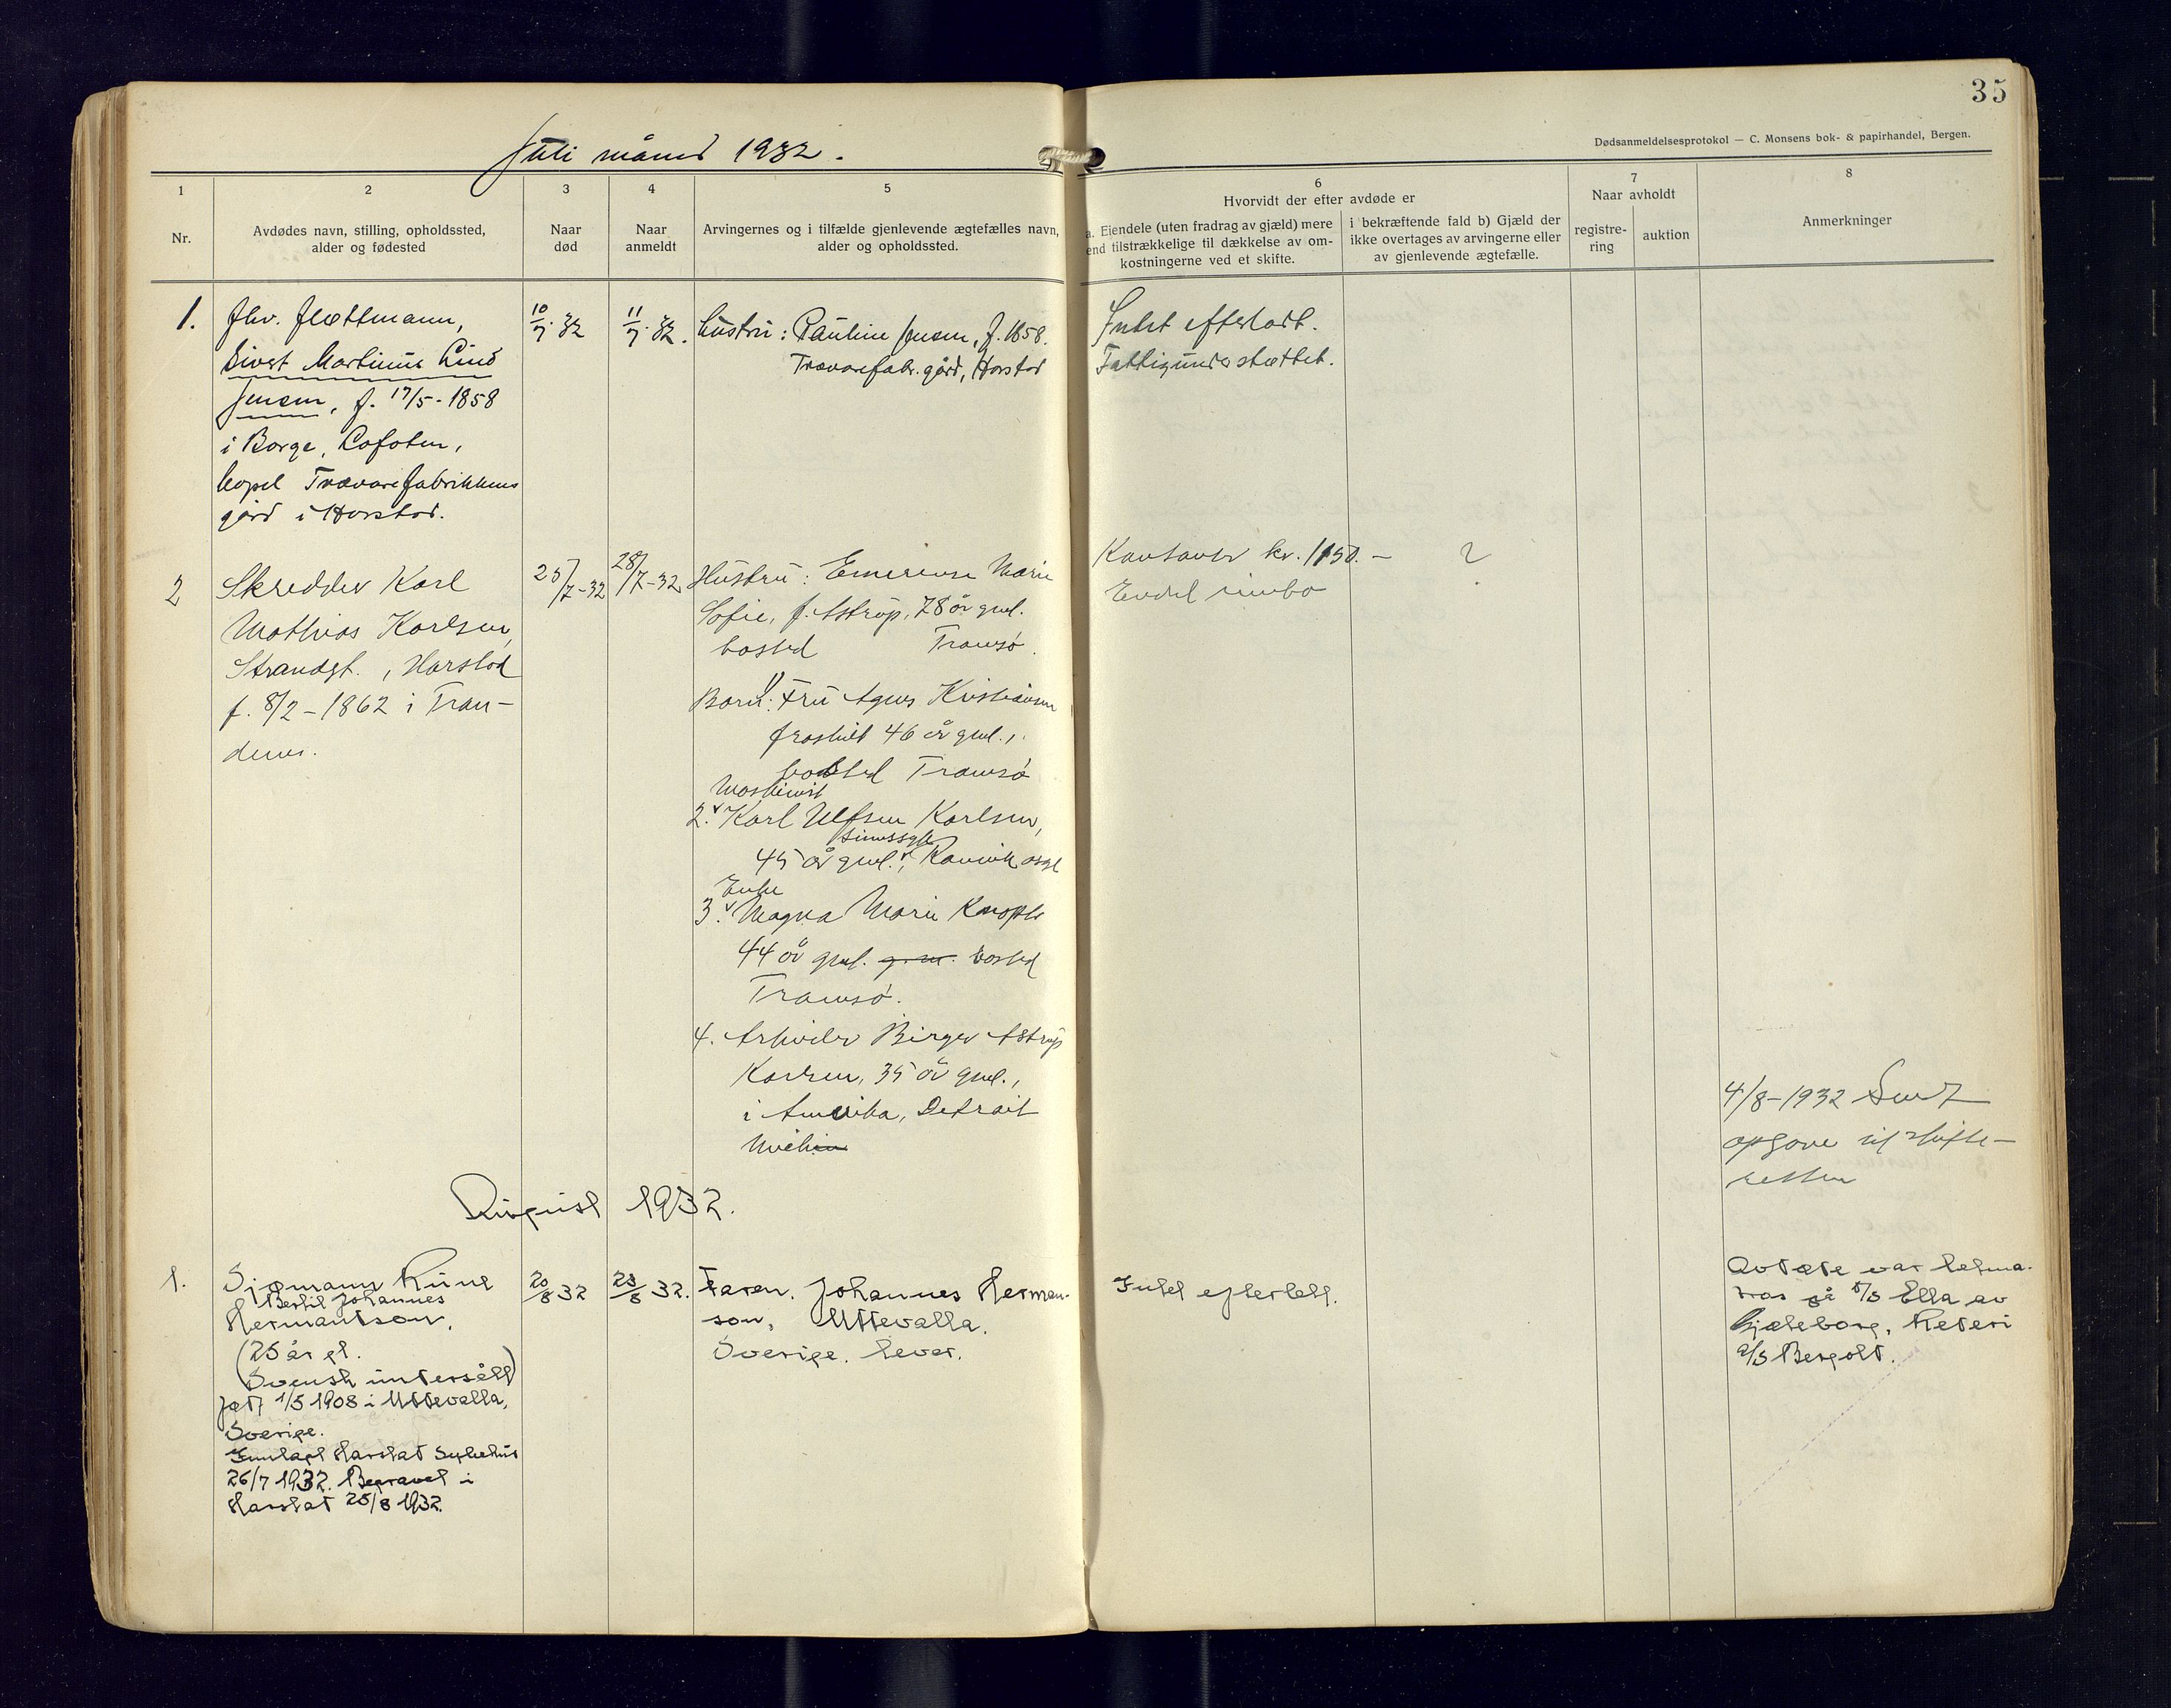 35
Dødsanmeldelsesprotokol — C. Monsens bok- & papirhandel, Bergen.
Juli måned 1932.
1
2
3
4
5
6
7
8
Nr.
Avdødes navn, stilling, opholdssted,
alder og fødested
Naar
død
Naar
anmeldt
Arvingernes og i tilfælde gjenlevende ægtefælles navn,
alder og opholdssted.
Hvorvidt der efter avdøde er
a. Eiendele (uten fradrag av gjæld) mere
end tilstrækkelige til dækkelse av om-
kostningerne ved et skifte.
i bekræftende fald b) Gjæld der
ikke overtages av arvingerne eller
av gjenlevende ægtefælle.
Naar avholdt
registre-
ring
auktion
Anmerkninger
1.
fhv. fløttmann,
Sivert Martinus Lind
Jensen, f. 17/5-1858
i Borge, Lofoten,
bopel Trævarefabrikkens
gård i Harstad.
10/7.32
11/7.32.
hustru: Pauline Jensen, f. 1858.
Trævarefabr. gård, Harstad
Intet efterladt.
Fattigunderstøttet.
2
Skredder Karl
Mathias Karlsen,
Strandgt., Harstad
f. 8/2-1862 i Tran-
25/7-32
28/7-32
Hustru: Emerense Marie
Sofie, f. Astrup, 78 år gml.
bosted Tromsø.
Barn: Fru Agnes Kristiansen
fraskilt 46 år gml.,
bosted Tromsø
Maskinist
2. Karl Ulfsen Karlsen,
sinnssyk
45 år gml., Rønvik asyl
Enke
3. Magna Marie
44 år gml. bosted
Tromsø.
4. Arbeider Birger Astrup
Karlsen, 35 år gml.,
i Amerika, Detroit
Kontanter kr. 1150.-
Endel innbo
?
4/8-1932 Sendt
opgave til skifte-
retten
August 1932.
1.
Sjømann Rune
Bertil Johannes
Hermantson,
(25 år gl.
Svensk undersått)
født 1/5 1908 i Uddevalla,
Sverige.
Innlagt Harstad Sykehus
26/7 1932. Begravet i
Harstad 25/8 1932.
20/8 32
23/8 32.
Faren. Johannes Herman-
son, Uddevalla.
Sverige. lever.
Intet efterlatt.
Avdøde var letma-
tros på D/S Ella av
Gjøteborg, Rederi
a/S Bergolt.